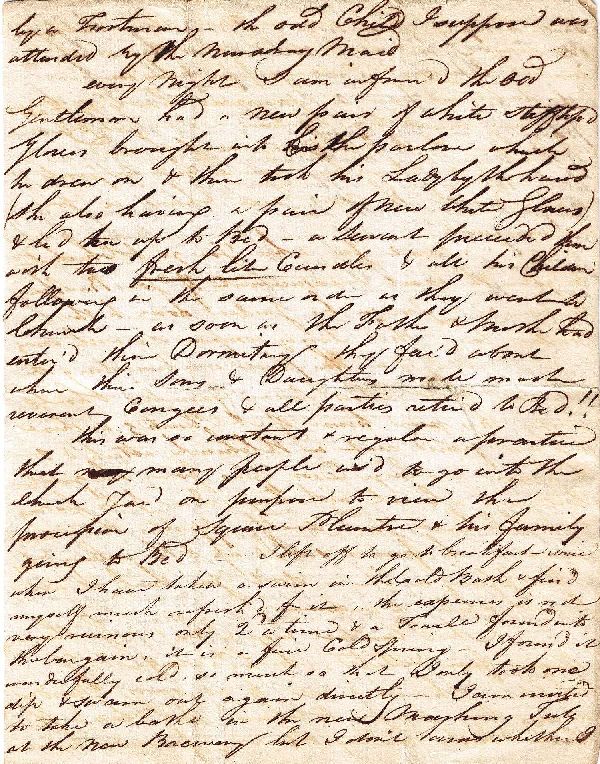 by a Footman – the odd Child I suppose was
attended by the Nursery Maid
every Night I am inform'd the Old
Gentleman had a new pair of white stiff tip'd
Gloves brought into the parlour which
he drew on & then took his Lady by the hand
(she also having a pair of New White Gloves)
& led her up to Bed – a Servant preceeded him
with two fresh lit Candles & all his Children
following in the same order as they went to
Church – as soon as the Father & Mother had
enter'd their Dormitary they fac'd about
when their Sons & Daughters made much
reverent Congees & all parties retir'd to Bed!!
this was so constant & regular a practice
that many people us'd to go into the
Church Yard on purpose to view the
procession of Squire & his family
going to Bed – I left off to go to breakfast since
when I have taken a swim in the Cold Bath & find
myself much refresh'd by it, the expence is not
very ruinous only 2d a time & a Towel found into
the bargain, it is a fine Cold Spring – I found it
wonderfully cold, so much so that I only took one
dip & swam out again directly – I am invited
to take a bathe in the new Mashing Tub
at the New Brewery but I don't know whether I